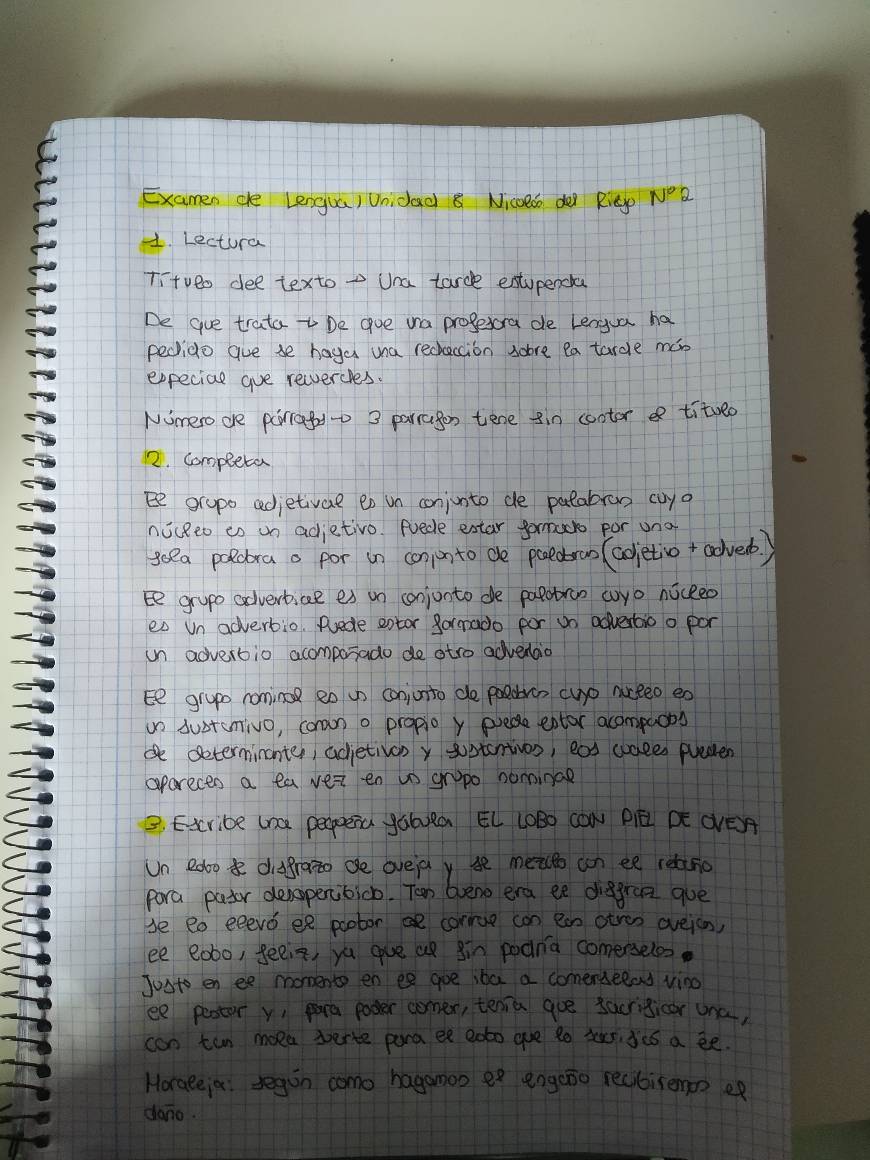 Examen de Lengua, Unidad 8 Nicolás del Riego Nº2
1. Lectura
Título del texto → Una tarde estupenda
De que trata → De que una profesora de Lengua ha
pedido que se haga una redacción sobre la tarde más
especial que recuerdes.
Número de párrafos → 3 parrafos tiene sin contar el título
2. Completa
El grupo adjetival es un conjunto de palabras cuyo
núcleo es un adjetivo. Puede estar formado por una
sola palabra o por un conjunto de palabras (adjetivo + adverb.)
El grupo adverbial es un conjunto de palabras cuyo núcleo
es un adverbio. Puede estar formado por un adverbio o por
un adverbio acompañado de otro adverbio
El grupo nominal es un conjunto de palabras cuyo nucleo es
un sustantivo, comun o propio y puede estar acompañados
de determinantes, adjetivos y sustantivos, los cuales pueden
aparecer a la vez en un grupo nominal
3. Escribe una pequeña fábula EL LOBO CON PIEL DE OVEJA
Un lobo se disfrazo de oveja y se mezclo con el rebaño
para pasar desapercibido. Tan bueno era el disfraz que
se lo llevó el pastor al corral con las otras ovejas,
el lobo, feliz, ya que al fin podría comerselas.
Justo en el momento en el que iba a comerselas vino
el pastor y, para poder comer, tenía que sacrificar una,
con tan mala suerte para el lobo que lo sacrificó a él.
Moraleja: según como hagamos el engaño recibiremos el
daño.